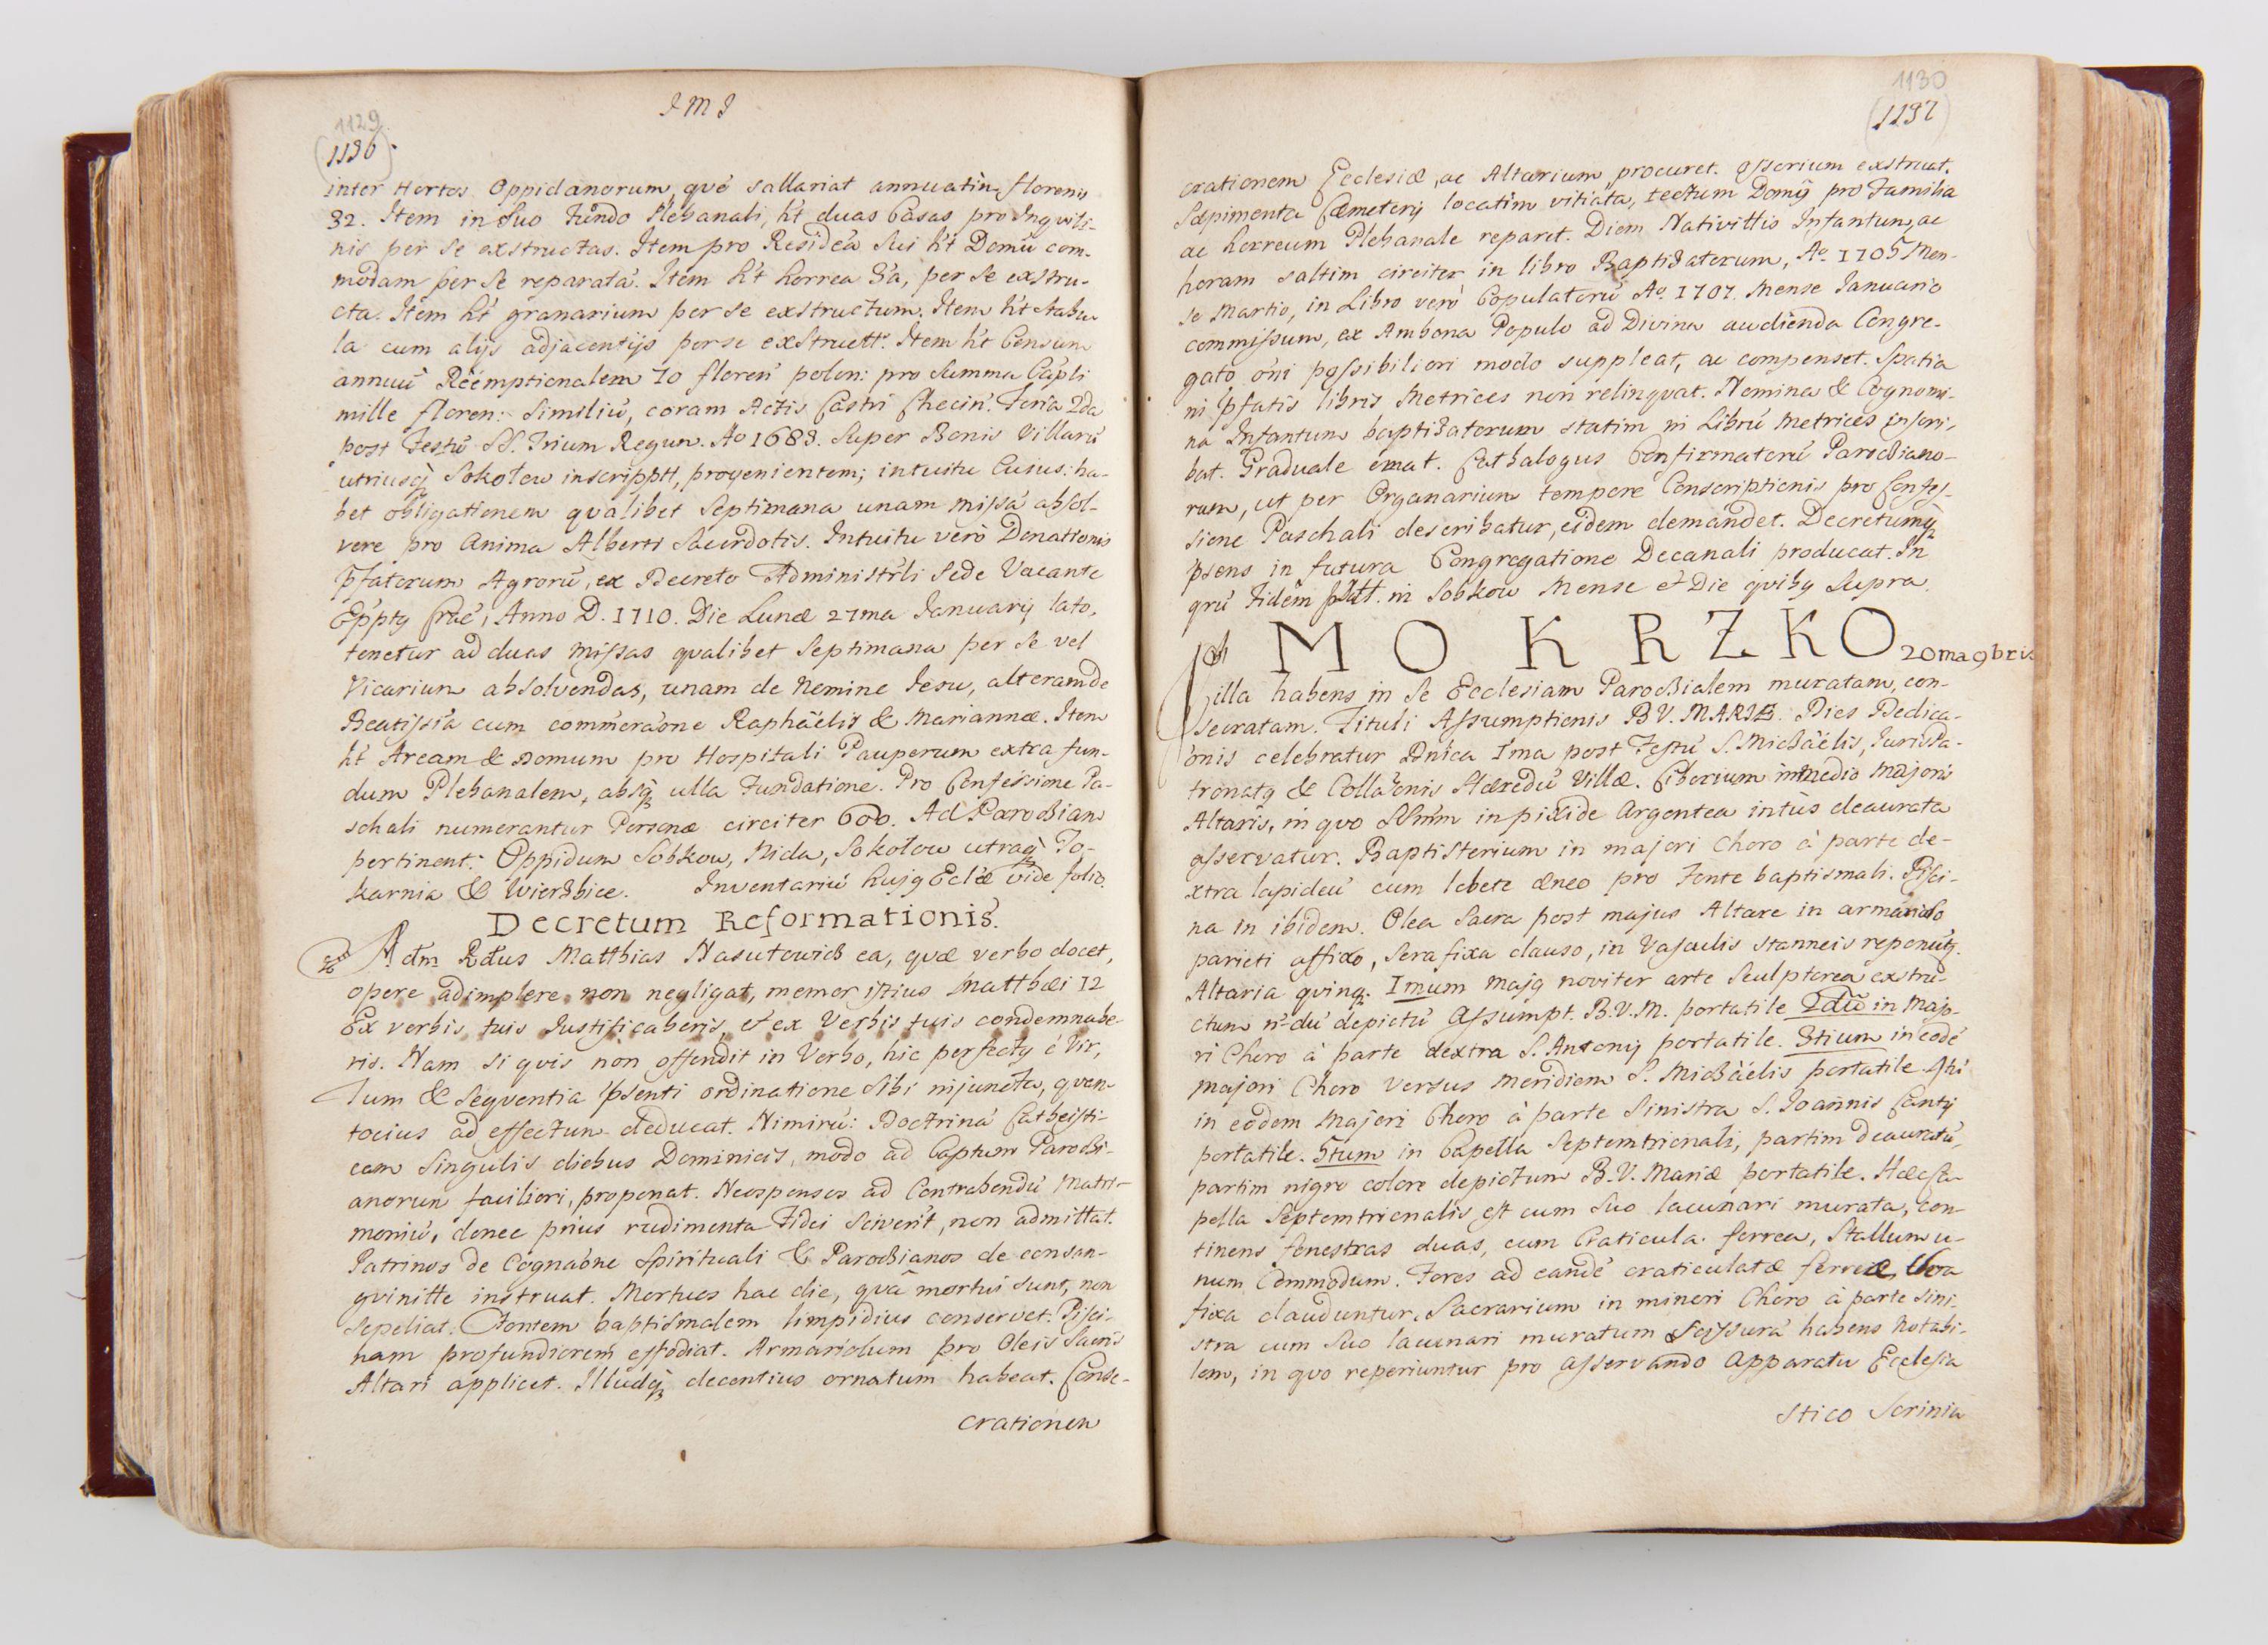 J M J
1129
(1136)
inter Hortos Oppidanorum, què sallariat annuatim florenis
32. Item in suo fundo Plebanali, h't duas Casas pro Inqvili-
nis per se exstructas. Item pro Residēa sui h't Domū com-
modam per se reparatā. Item h't horrea 3a, per se exstru-
cta. Item h't granarium per se exstructum. Item h't stabu
la cum alijs adjacentijs per se exstructt. Item h't Censum
annuū Reemptionalem 70 floren' polon: pro summa Cap'li
mille floren: similiū, coram Actis Castri Checin. Feria 2da
post Festū SS. Trium Regum. Ao 1683. super Bonis Villarū
utriusq Sokołow inscriptt, provenientem; intuitu cuius ha-
bet obligationem qvalibet septimana unam missā absol-
vere pro anima Alberti Sacerdotis. Intuitu verò Donationis
p'fatorum Agrorū, ex Decreto Administr'li Sede Vacante
Ep'ptg Crac', Anno D. 1710. Die Lunæ 27ma Januarij lato,
tenetur ad duas missas qvalibet septimana per se vel
Vicarium absolvendas, unam de Nomine Jesu, alteram de
Beatissia cum commeraōne Raphaëlis & Mariannæ. Item
h't Aream & Domum pro Hospitali Pauperum extra fun-
dum Plebanalem, absq ulla Fundatione. Pro Confessione Pa-
schali numerantur Personæ circiter 600. Ad Parochiam
pertinent: Oppidum Sobkow, Nida, Sokołow utraq, To-
karnia & Wierzbice. Inventariū hujg Ecl'æ vide folio.
Decretum Reformationis.
Adm Rdus Matthias Nasutowich ea, quæ verbo docet,
opere adimplere non negligat, memor istius Matthæi 12
Ex verbis tuis Justificaberis, et ex Verbis tuis condemnabe-
ris. Nam si qvis non offendit in Verbo, hic perfectg ē Vir,
Tum & seqventia p'senti ordinatione sibi injuncta, qvan-
tocius ad effectum deducat. Nimirū: Doctrinā Catheisti-
cam singulis diebus Dominicis, modo ad Captum Parochi-
anorum faciliori, proponat. Neosponsos ad Contrahendū Matri-
moniū, donec prius rudimenta Fidei sciverit, non admittat.
Patrinos de Cognaōne Spirituali & Parochianos de consan-
gvinitte instruat. Mortuos hac die, quā mortui sunt, non
sepeliat. Fontem baptismalem limpidius conservet. Pisci-
nam profundiorem effodiat. Armariolum pro Oleis Sacris
Altari applicet. Illudq decentius ornatum habeat. Conse-
crationem
1130
(1137)
crationem Ecclesiæ, ac Altarium procuret. Ossorium exstruat.
Sæpimenta Cæmeterij locatim vitiata, tectum Domg pro Familia
ac horreum Plebanale reparet. Diem Nativittis Infantum, ac
horam saltim circiter in libro Baptisatorum, Ao. 1705 Men-
se Martio, in Libro verò Copulatorū Ao. 1707. Mense Januario
commissum, ex Ambona Populo ad Divina audienda Congre-
gato om'i possibiliori modo suppleat, ac compenset. Spatia
in p'fatis libris Metrices non relinqvat. Nomina & Cognomi-
na Infantum baptisatorum statim in Librū Metrices inscri-
bat. Graduale emat. Cathalogus Confirmatorū Parochiano-
rum, ut per Organarium tempore Conscriptionis pro Confes-
sione Paschali describatur, eidem demandet. Decretumq
p'sens in futura Congregatione Decanali producat. In
qrū Fidem p'satt. in Sobkow Mense et Die qvibg supra.
MOKRZKO 20ma 9bris
Villa habens in se Ecclesiam Parochialem muratam, con-
secratam. Tituli Assumptionis B V. MARIÆ. Dies Dedica-
onis celebratur Dnica Ima post Festū S. Michaëlis, Juris Pa-
tronatg & Collaōnis Hæredū Villæ. Ciborium in medio Majoris
Altaris, in qvo SSmum in pixide Argentea intùs deaurata
asservatur. Baptisterium in majori Choro à parte de-
xtra lapideū cum lebete æneo pro Fonte baptismali. Pisci-
na in ibidem. Olea Sacra post majus Altare in armariolo
parieti affixo, sera fixa clauso, in Vasculis stanneis reponūtg.
Altaria qvinq. Imum majg noviter arte Sculptorea exstru-
ctum n-dū depictū Assumpt. B.V.M. portatile 2dū in Majo-
ri Choro à parte dextra S. Antonij portatile. 3tium in eodē
majori Choro versus meridiem S. Michaëlis portatile 4tū
in eodem Majori Choro à parte Sinistra S. Joannis Cantij
portatile. 5tum in Capella Septemtrionali, partim deauratū,
partim nigro colore depictum B.V. Mariæ portatile. Hæc Ca-
pella Septemtrionalis est cum suo lacunari murata, con-
tinens fenestras duas, cum Craticula ferrea, Stallum u-
num Commodum. Fores ad eandē craticulatæ ferreæ sera
fixa clauduntur. Sacrarium in minori Choro à parte sini-
stra cum suo lacunari muratum scissurā habens notabi-
lem, in qvo reperiuntur pro asservando Apparatu Ecclesia
stico Scrinia